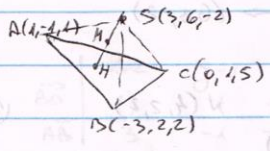 A(1,-1,1)
S(3,6,-2)
M
H
C(0,1,5)
B(-3,2,2)